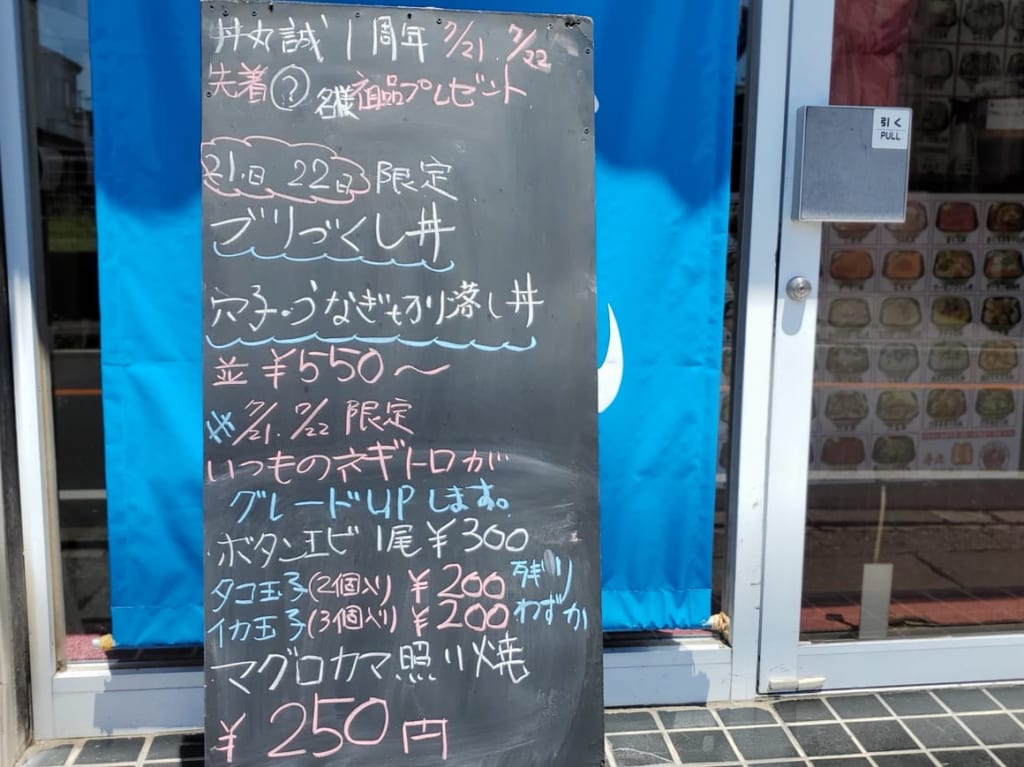 丼丸誠 1周年 7/21. 7/22
先着?名様 プレゼント
21.日 22日 限定
ブリづくし丼
穴子・うなぎもり落し丼
並 ¥550〜
7/21. 7/22 限定
いつものネギトロが
グレードUPします。
ボタンエビ 1尾¥300
タコ玉子(2個入り) ¥200
イカ玉子(3個入り) ¥200 わずか
マグロカマ照り焼
¥250円
引く
PULL